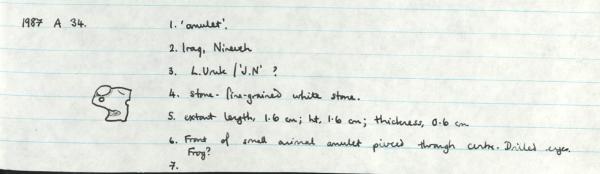 1987 A 34.
1. 'amulet'.
2. Iraq, Nineveh
3. L.Uruk / 'J.N' ?
4. stone - fine-grained white stone.
5. extant length, 1.6 cm; ht. 1.6 cm; thickness, 0.6 cm
6. Front of small animal amulet pierced through centre. Drilled eyes.
Frog?
7.